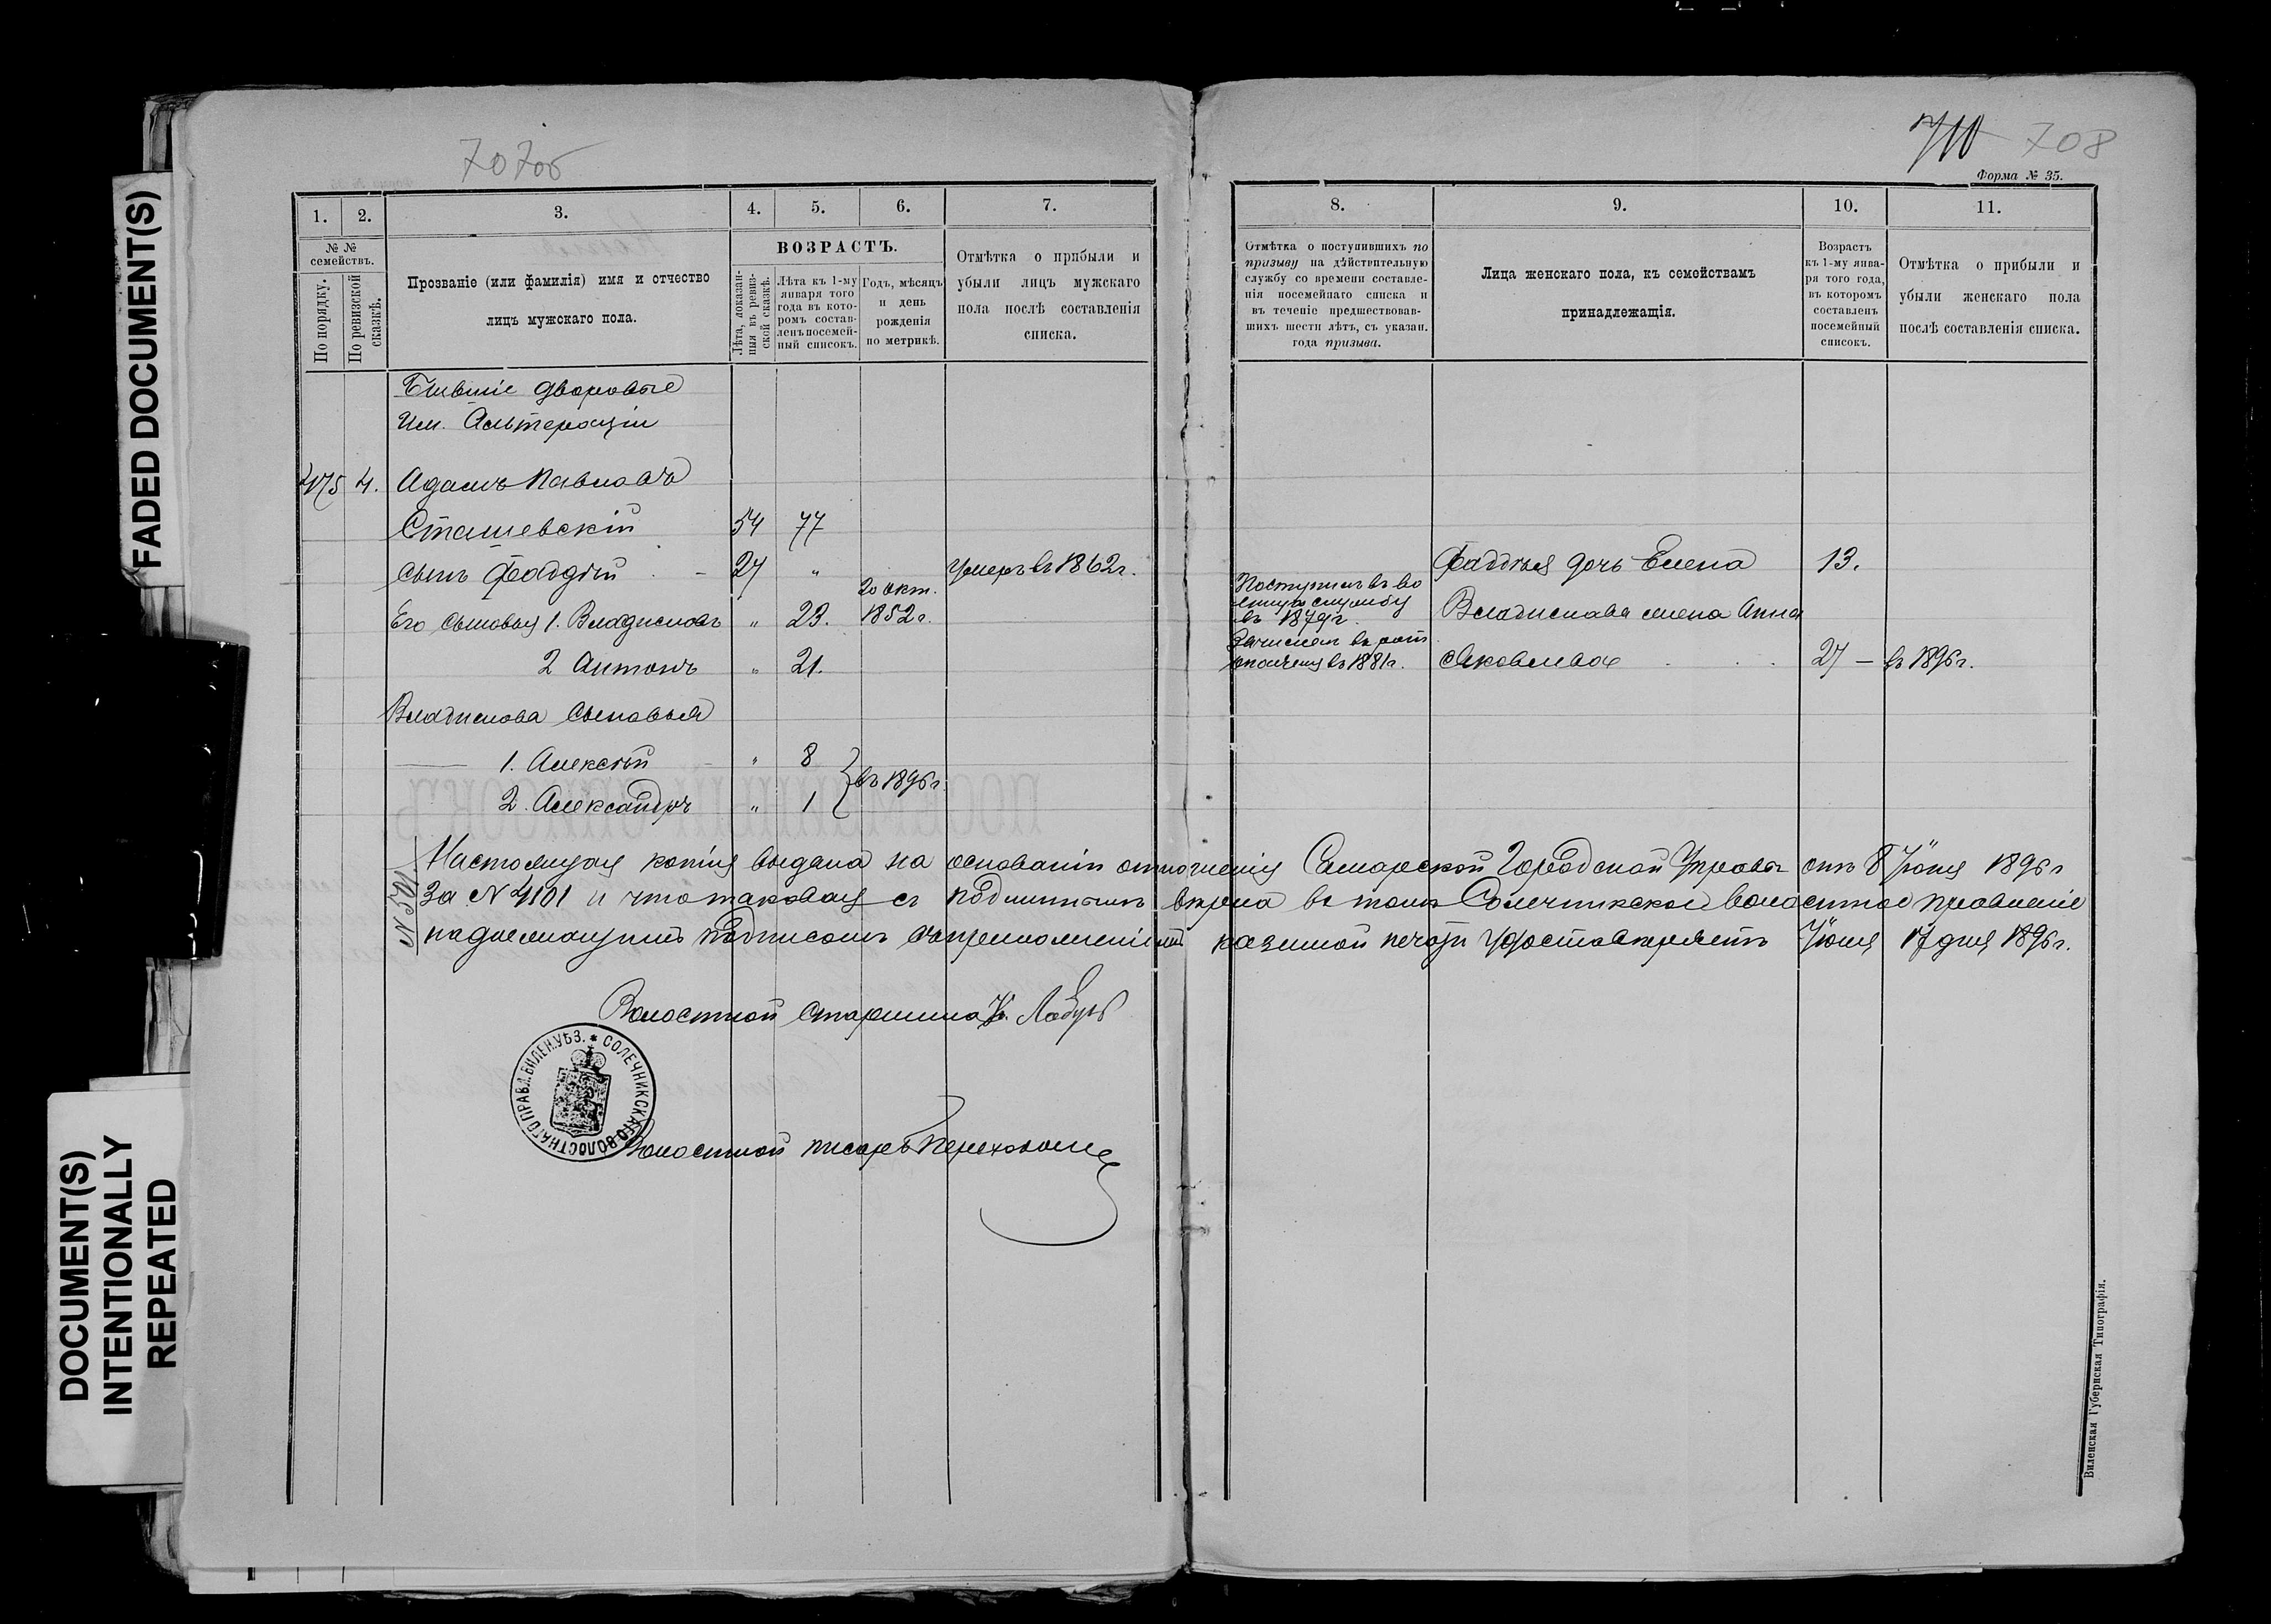 FADED DOCUMENT(S)
DOCUMENT(S)
INTENTIONALLY
REPEATED
707об
710 708
Форма № 35.
1. 2. 3. 4. 5. 6. 7.
№ № семействъ.
По порядку.
По ревизской сказкѣ.
Прозваніе (или фамилія) имя и отчество
лицъ мужскаго пола.
ВОЗРАСТЪ.
Лѣта, показан-
ныя въ ревиз-
ской сказкѣ.
Лѣта къ 1-му
января того
года въ кото-
ромъ состав-
ленъ посемей-
ный списокъ.
Годъ, мѣсяцъ
и день
рожденія
по метрикѣ.
Отмѣтка о прибыли и
убыли лицъ мужскаго
пола послѣ составленія
списка.
8. 9. 10. 11.
Отмѣтка о поступившихъ по
призыву на дѣйствительную
службу со времени составле-
нія посемейнаго списка и
въ теченіе предшествовав-
шихъ шести лѣтъ, съ указан.
года призыва.
Лица женскаго пола, къ семействамъ
принадлежащія.
Возрастъ
къ 1-му янва-
ря того года,
въ которомъ
составленъ
посемейный
списокъ.
Отмѣтка о прибыли и
убыли женскаго пола
послѣ составленія списка.
Бывшіе дворовые
им. Альтераціи
475 4. Адамъ Павловъ
Сташевскій 54 77
сынъ Фаддѣй - 27 " умеръ въ 1862 г.
Его сыновья 1. Владиславъ " 23. 20 окт. 1852 г.
2 Антонъ " 21.
Владислава сыновья
1. Алексѣй " 8
2. Александръ " 1
въ 1896 г.
Поступилъ въ во
енную службу
въ 1874 г.
Зачисленъ въ рат
ополченія въ 1881 г.
Фаддѣя дочь Елена 13.
Владислава жена Анна
Яковлева 27 — въ 1896 г.
№ 501
Настоящая копія выдана на основаніи отношенія Самарской Городской Управы отъ 8 Іюня 1896 г
за № 4101 и что таковая съ подлиннымъ вѣрна въ томъ Солечникское волостное правленіе
надлежащимъ подписомъ съ приложеніемъ казенной печати удостовѣряетъ Іюня 17 дня 1896 г.
Волостной старшина
СОЛЕЧНИКСКАГО ВОЛОСТНАГО ПРАВЛ. ВИЛЕН. УѢЗ.
Волостной писарь
Виленская Губернская Типографія.